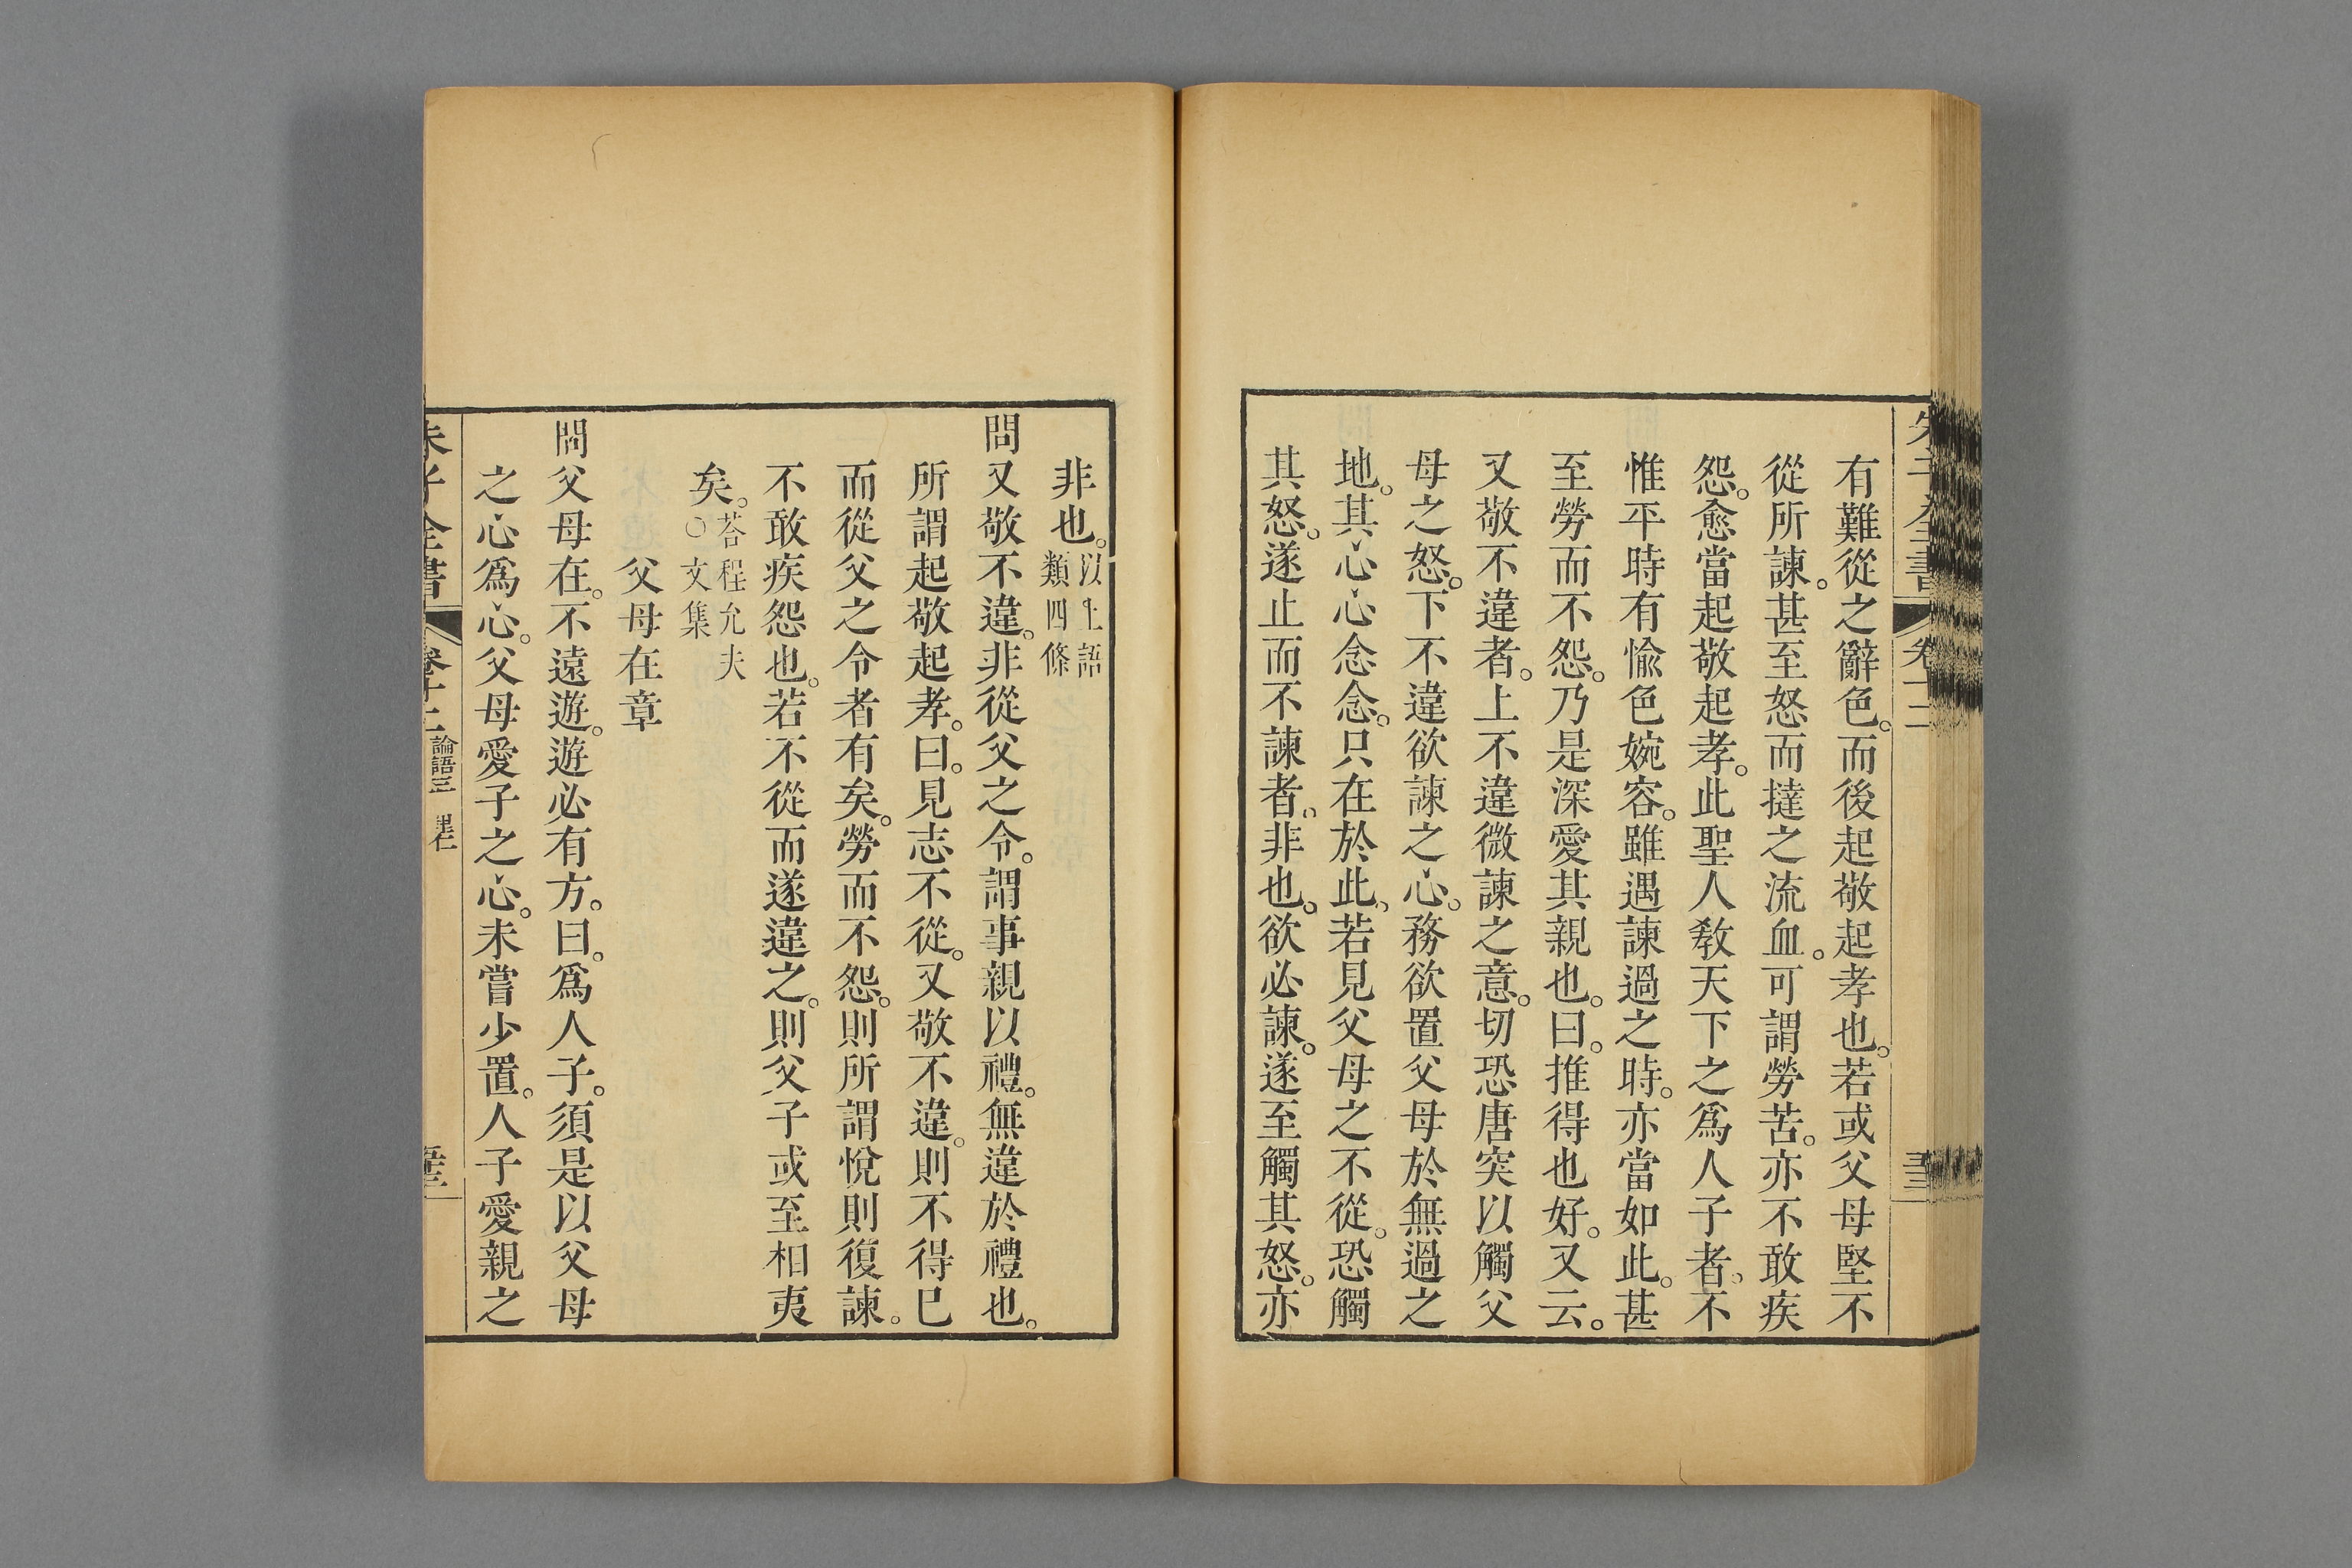 有難從之辭色。而後起敬起孝也。若或父母堅不
從所諫。甚至怒而撻之流血。可謂勞苦。亦不敢疾
怨。愈當起敬起孝。此聖人教天下之爲人子者。不
惟平時有愉色婉容。雖遇諫過之時。亦當如此。甚
至勞而不怨。乃是深愛其親也。曰。推得也好。又云。
又敬不違者。上不違微諫之意。切恐唐突以觸父
母之怒。下不違欲諫之心。務欲置父母於無過之
地。其心心念念。只在於此。若見父母之不從。恐觸
其怒。遂止而不諫者。非也。欲必諫。遂至觸其怒。亦
非也。以上語類四條
問又敬不違。非從父之令。謂事親以禮。無違於禮也。
所謂起敬起孝。曰。見志不從。又敬不違。則不得已
而從父之令者有矣。勞而不怨。則所謂悅則復諫。
不敢疾怨也。若不從而遂違之。則父子或至相夷
矣。荅程允夫○文集
父母在章
問父母在。不遠遊。遊必有方。曰。爲人子。須是以父母
之心爲心。父母愛子之心。未嘗少置。人子愛親之
朱子全書 卷十二 論語三 里仁